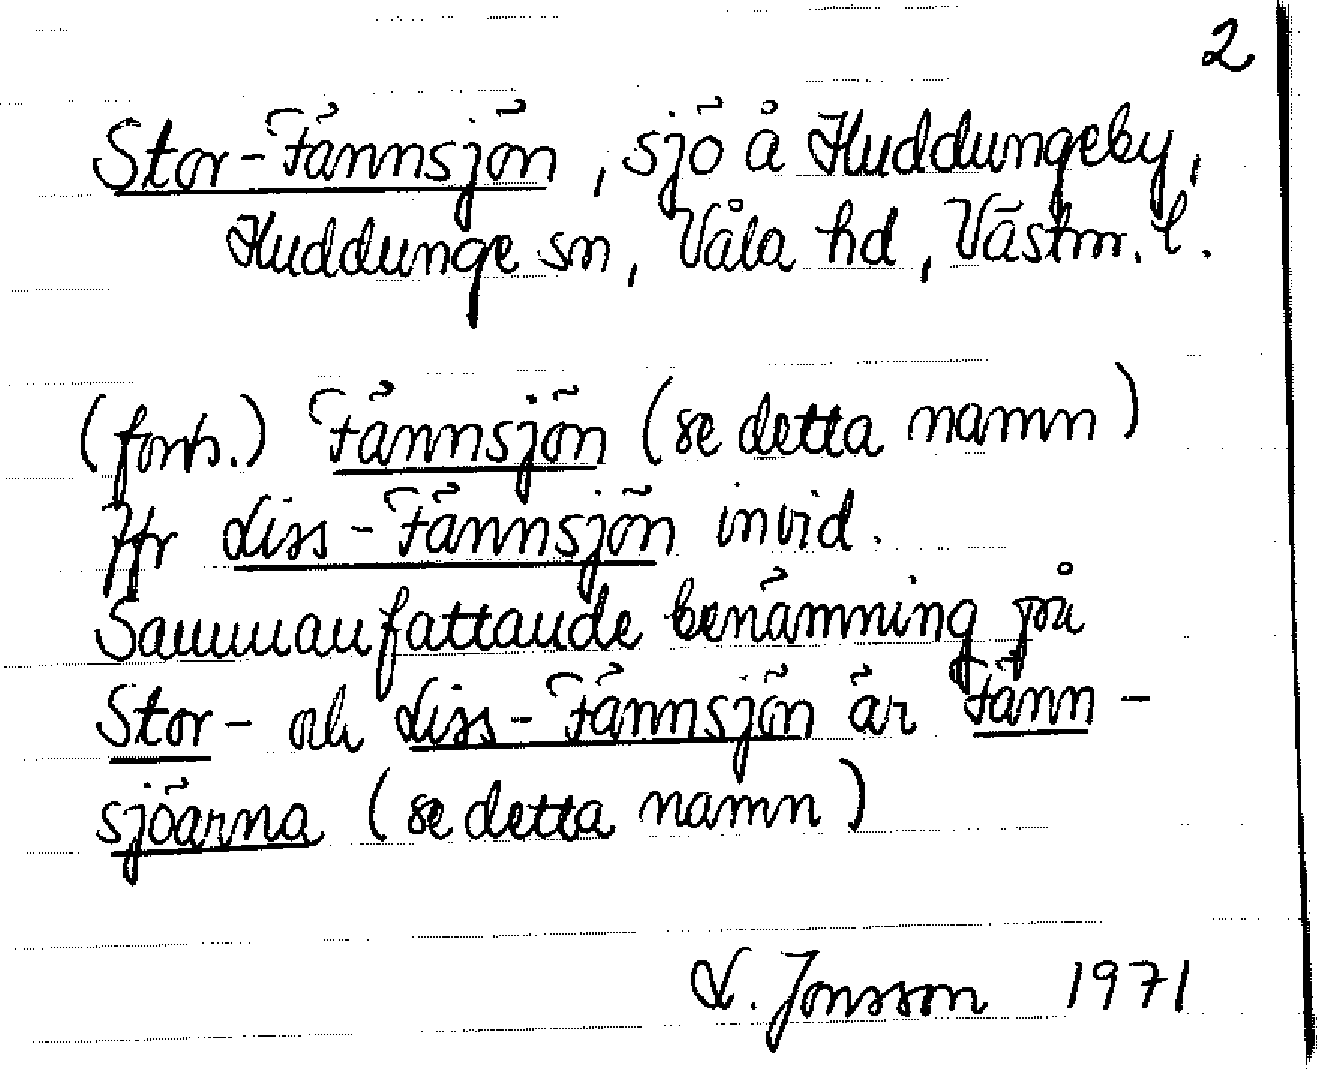 2
Stor-Fännsjön, sjö å Huddungeby,
Huddunge sn, Våla hd, Västm. l.
(forts.) Fännsjön (se detta namn)
Jfr Liss-Fännsjön invid.
Sammanfattande benämning på
Stor- och Liss-Fännsjön är Fänn-
sjöarna (se detta namn)
L. Jonsson 1971